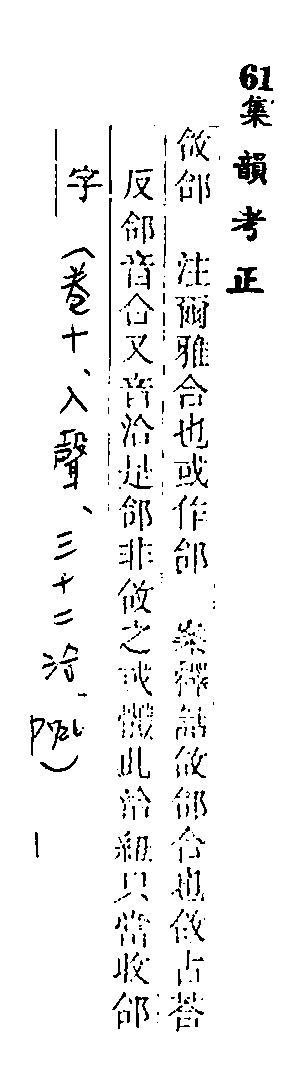 61集韻考正
敆郃 注爾雅合也或作郃 案釋詁敆郃合也敆古荅
反郃音合又音洽是郃非敆之或體此洽紐只當收郃
字（卷十、入聲、三十二洽、